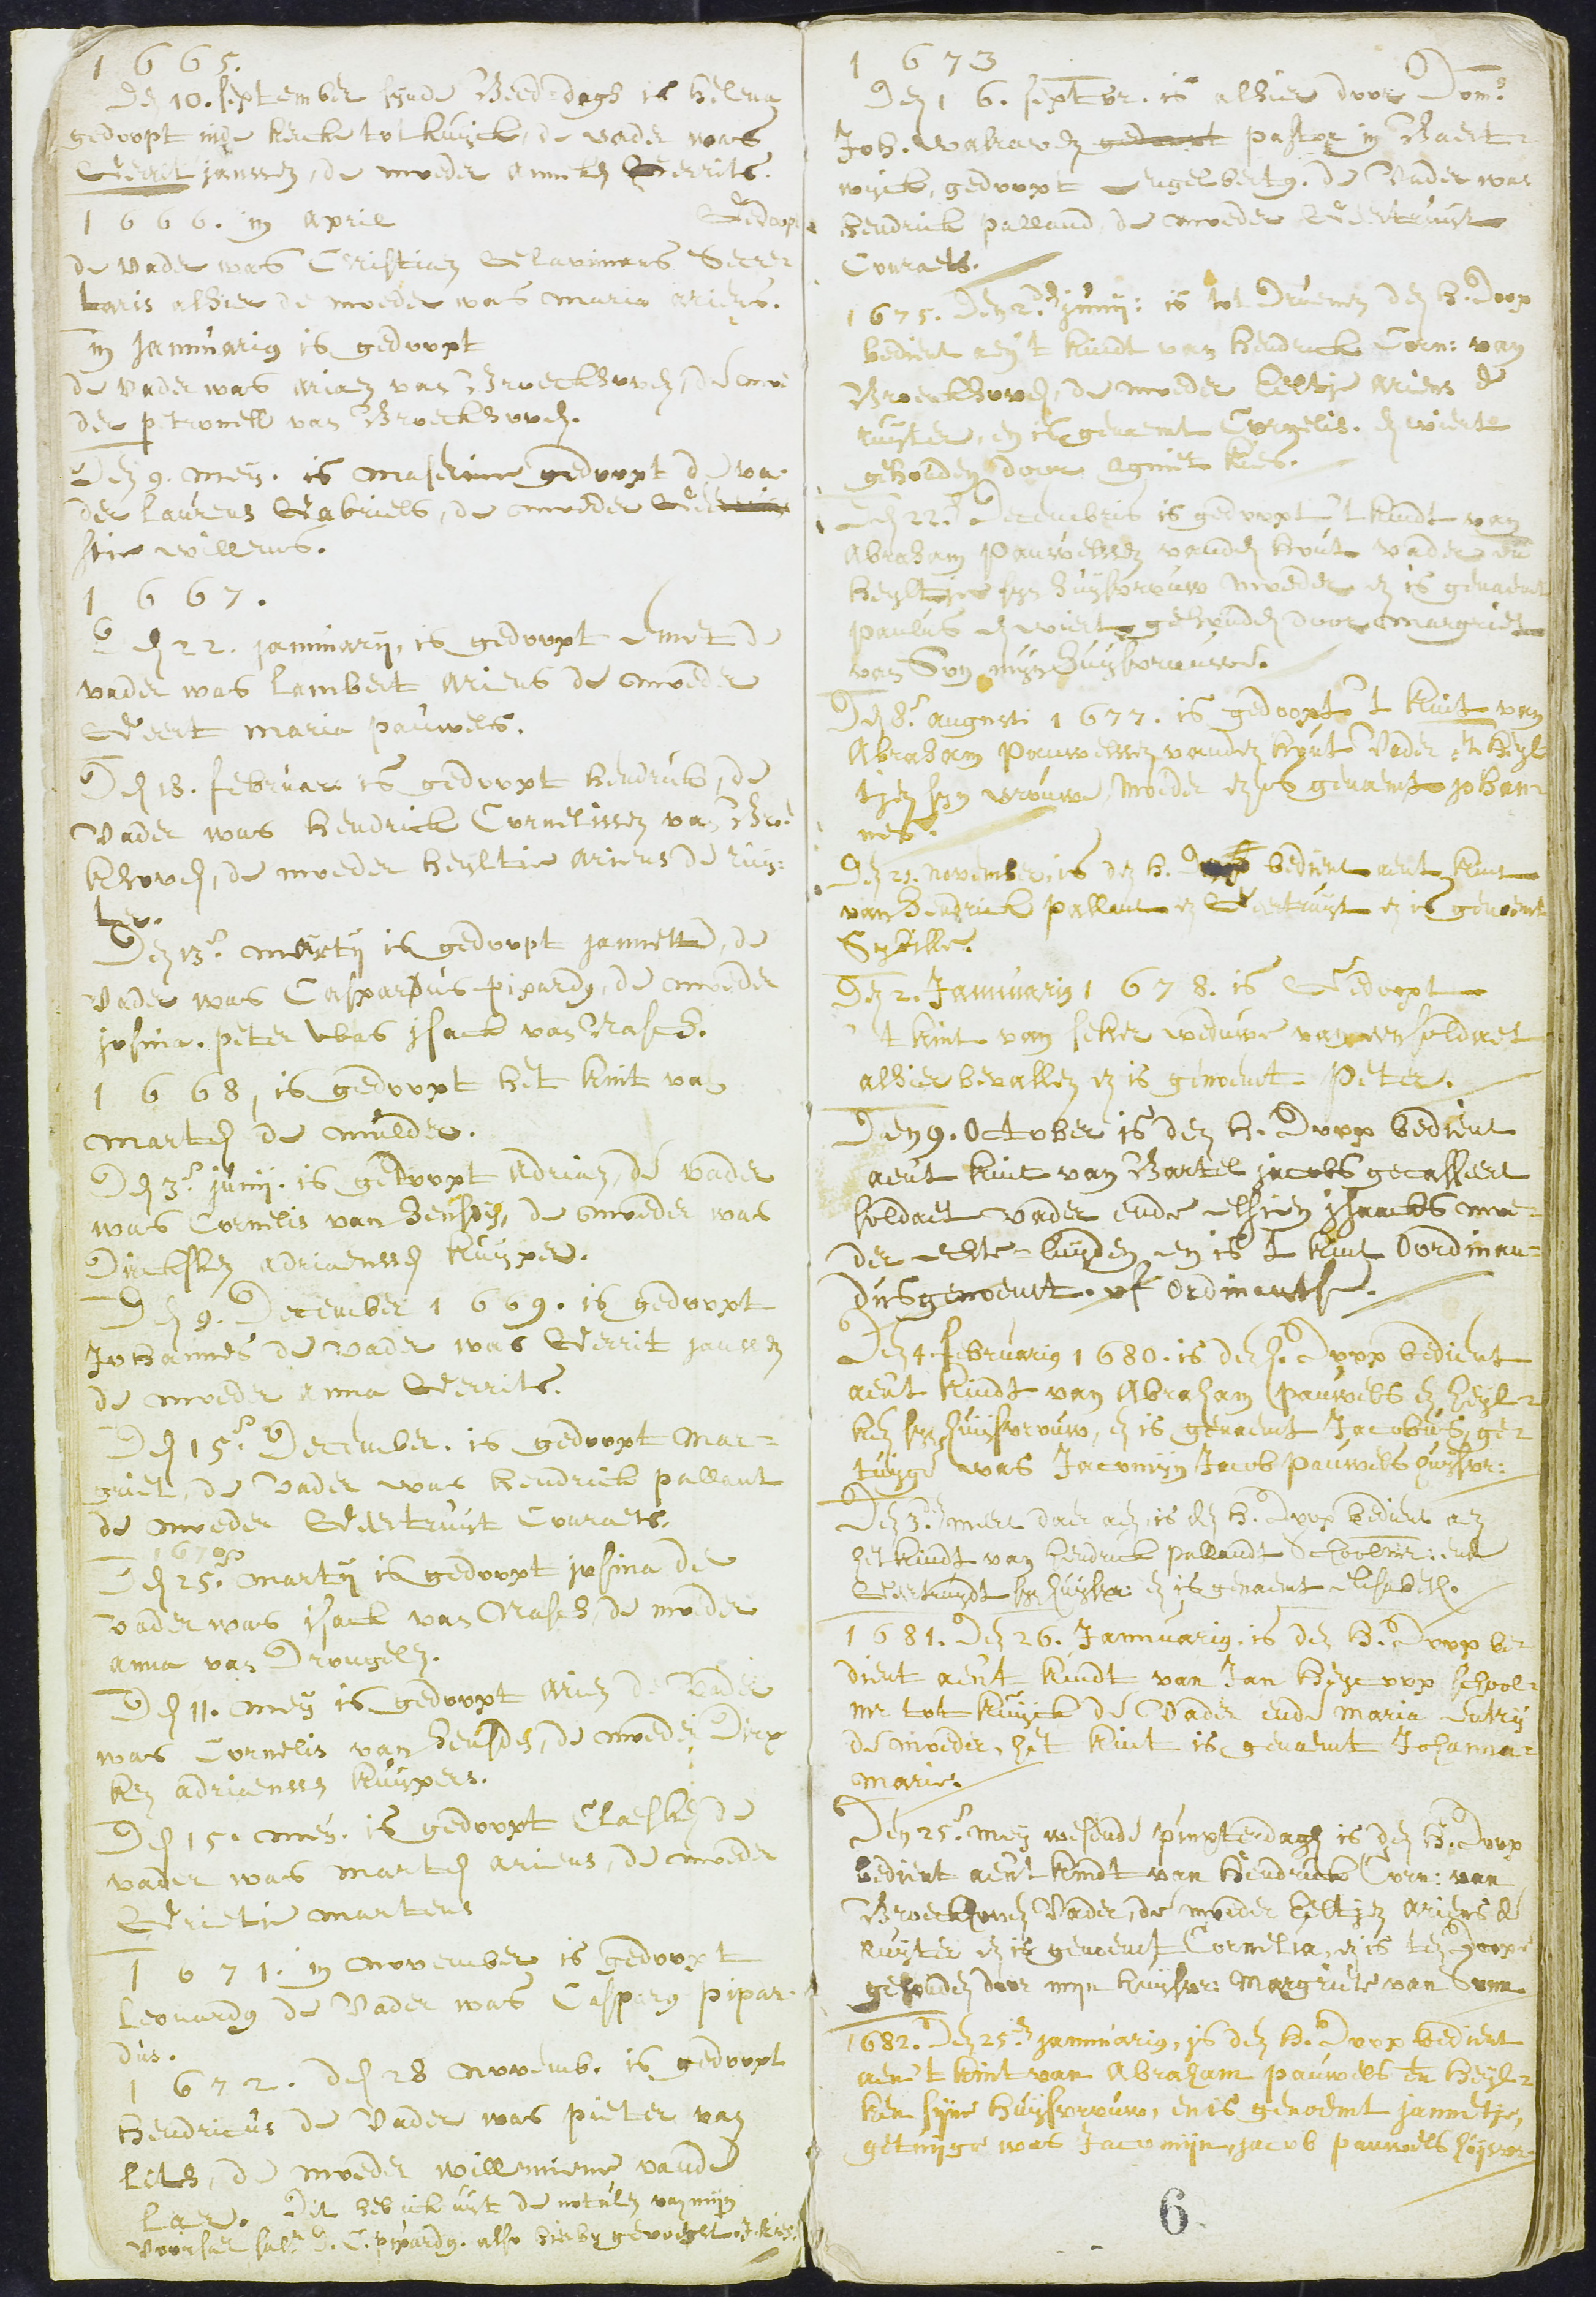 1665.
Den 10. september synde Beed-dagh is helena
gedoopt inde kerck tot kuyck, de vader was
Gerrit janssen, de moeder anneken Gerrits.
1666. in April Gedoopt
de vader was Cristiaen Glavimans Secre-
taris alhier de moeder was maria ariens.
in Januarius is gedoopt
de vader was ariaen van Broeckhoven, de moe
der petronell van Broeckhoven.
Den 9. mey. is gedoopt de va-
der laurens Gabriels, de moeder
stie willems.
1667.
den 22. januarij, is gedoopt de
vader was lambert Ariens de moeder
Geert maria pauwels.
Den 18. februar is gedoopt hendrick, de
Vader was hendrick Cornelissen van Bro
khoven, de moeder heyltie ariens de ruy-
ter.
Den 13. martij is gedoopt jannette, de
Vader was Caspardus pixardus, de moeder
josina. peter was jsack van Nasch.
1668, is gedoopt het kint van
marten de mulder.
Den 3. junij. is gedoopt Adriaen, de vader
was Cornelis van heusden, de moeder was
Dirksken adriaenssen kuyper.
Den 9. December 1669. is gedoopt
Johannes de vader was Gerrit janssen
de moeder anna Gerrits.
Den 15. December. is gedoopt Mar-
griet, de Vader was hendrick pallant
de moeder Geertruyt Conraets.
1670
Den 25. martij is gedoopt josina de
vader was jsack van Nasch, de moeder
anna van Drongelen.
Den 11. mey is gedoopt Arien de Vader
was Cornelis van heusden, de moeder Dirx
ken adriaenssen kuypers.
Den 15. mey. is gedoopt Claesken de
vader was marten ariens, de moeder
Grietie martens
1671. in november is gedoopt
Leonardus de Vader was Casparus pixar-
dus.
1672. den 28 novemb. is gedoopt
Hendricus de Vader was pieter van
lith, de moeder willemiene vande
Laer. Dit heb ick uyt de notulen van mijn
Voorsaet C. pixardus. also hierby gevoeght.
1673
Den 16. septbr. is alhier door Dom.
Joh. Walraven gedoopt pastor in Baert-
wyck, gedoopt engelbertus. de Vader was
hendrick palland, de moeder Geertruyt
Conraets.
1675. Den 2. junij: is tot Drunen den H. Doop
bedient aen 't kindt van hendrick Corn: van
Broeckhoven, de moeder Eeltje Ariens de
ruyter, en is genaemt Cornelis. en wierte
gehouden door Agniet kies.
Den 22. Decembris is gedoopt 't kindt van
Abraham Pauwelssen vanden hout vader en
heyltjie syn huysvrouw moeder en is genaemt
paulus en wiert gehouden door margriet
van Son mijn huysvrouwe.
Den 8. augusti 1677. is gedoopt 't kint van
Abraham Pauwelssen vanden hout Vader en heyl
tjen syn vrouwe, Moeder en is genaemt johan-
nes.
Den 21. november is den H. Doop bedient aent kint
van hendrick pallant en Geertruyt en is genaemt
Sybille.
Den 2. Januarius 1678. is Gedoopt
't kint van seker weduwe van een soldaet
alhier bevallen en is genoemt Peter.
Den 9. October is den H. Doop bedient
aent kint van Bartel jacobs gecasseert
soldaet vader ende elsien jsaacks moe-
der echte-luyden en is 't kint Oordinan-
dus genoemt. of Ordinantse.
Den 4. februarius 1680. is den H. Doop bedient
aent kindt van Abraham pauwels en heyl-
ken syn huysvrouw, en is genaemt Jacobus, ge-
tuyge was Jacomijn Jacob pauwels huysvr:
Den 3. mert daer aen is den H. Doop bedient aen
het kindt van hendrick pallandt Schoolmr: ende
Geertruydt syn huysvr: en is genaemt elisabeth.
1681. Den 26. Januarius. is den H. Doop be-
dient aen't kindt van Jan Heycoop school-
mr tot kuyck de Vader ende maria
de moeder, het kint is genaemt Johanna-
marie.
Den 25. mey wesende pinxterdagh is den H. Doop
bedient aen't kindt van hendrick Corn: van
Broeckhoven Vader, de moeder Eeltjen Ariens de
ruyter en is genoemt Cornelia, en is ten doope
gehouden door mijn huysvr: Margriete van Sonn
1682. Den 25. januarius, is den H. Doop bedient
aen 't kint van Abraham pauwels en heyl-
ken syne huysvrouw, en is genoemt jannetje,
getuyge was Jacomijn, jacob pauwels huysvr
6